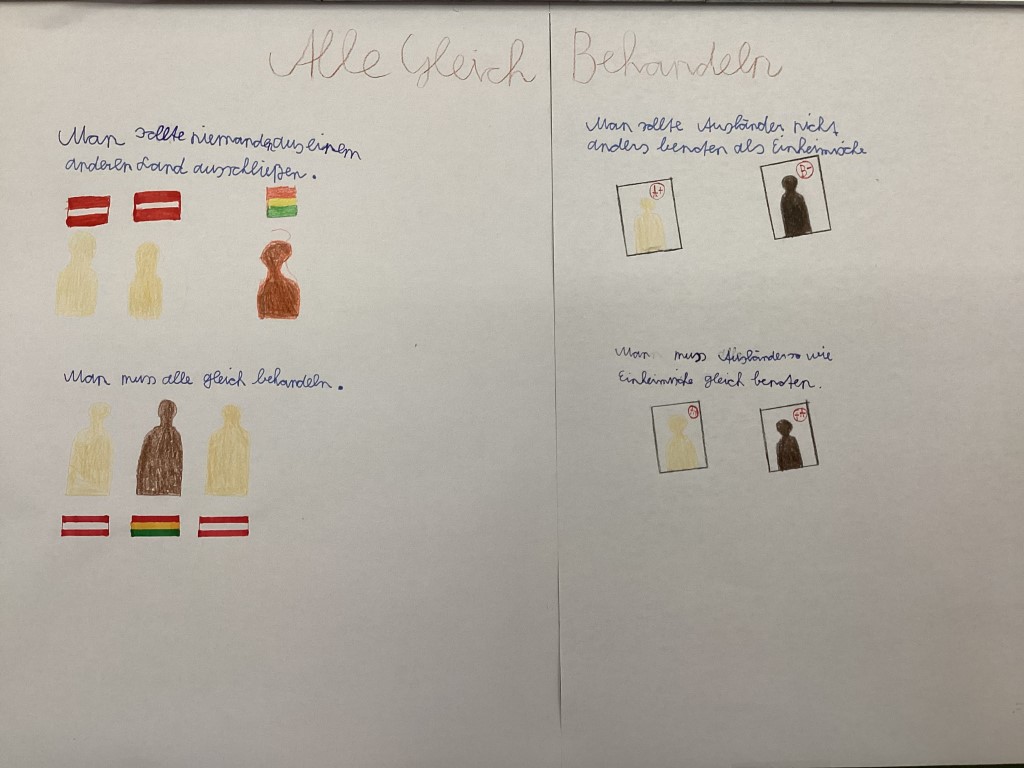 Alle Gleich Behandeln
Man sollte niemanden aus einem
anderen Land ausschließen.
Man muss alle gleich behandeln.
Man sollte Ausländer nicht
anders benoten als Einheimische
A+
B-
Man muss Ausländer so wie
Einheimische gleich benoten.